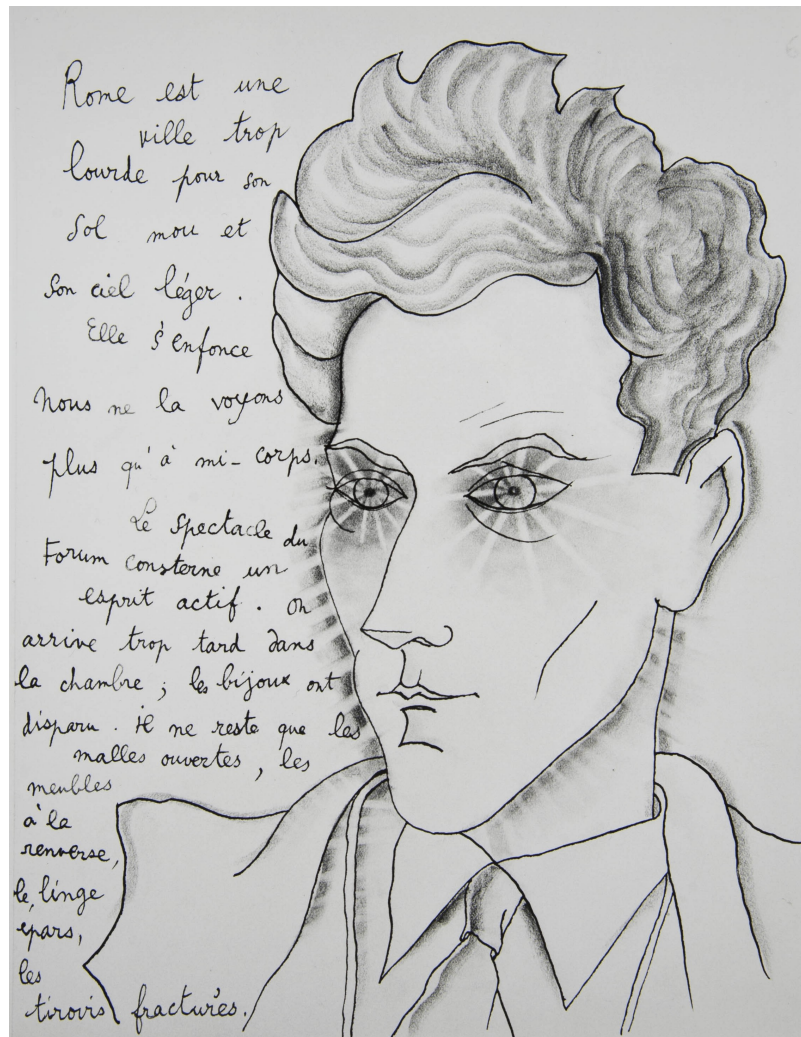 Rome est une
ville trop
lourde pour son
sol mou et
son ciel léger.
Elle s'enfonce
Nous ne la voyons
plus qu'à mi-corps.
Le spectacle du
Forum consterne un
esprit actif. On
arrive trop tard dans
la chambre ; les bijoux ont
disparu. Il ne reste que les
malles ouvertes, les
meubles
à la
renverse,
le linge
épars,
les
tiroirs fracturés.